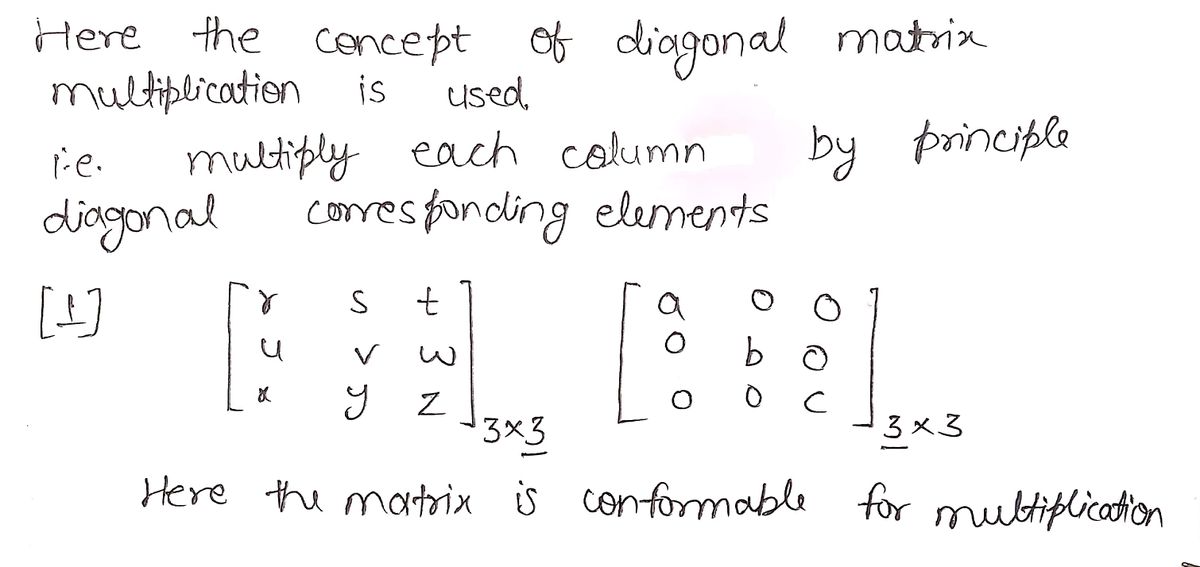 Here the concept of diagonal matrix
multiplication is used.
i.e. multiply each column by principle
diagonal corresponding elements
[1] [ r s t [ a 0 0 ]
u v w 0 b 0
x y z ] 3×3 0 0 c ] 3×3
Here the matrix is conformable for multiplication